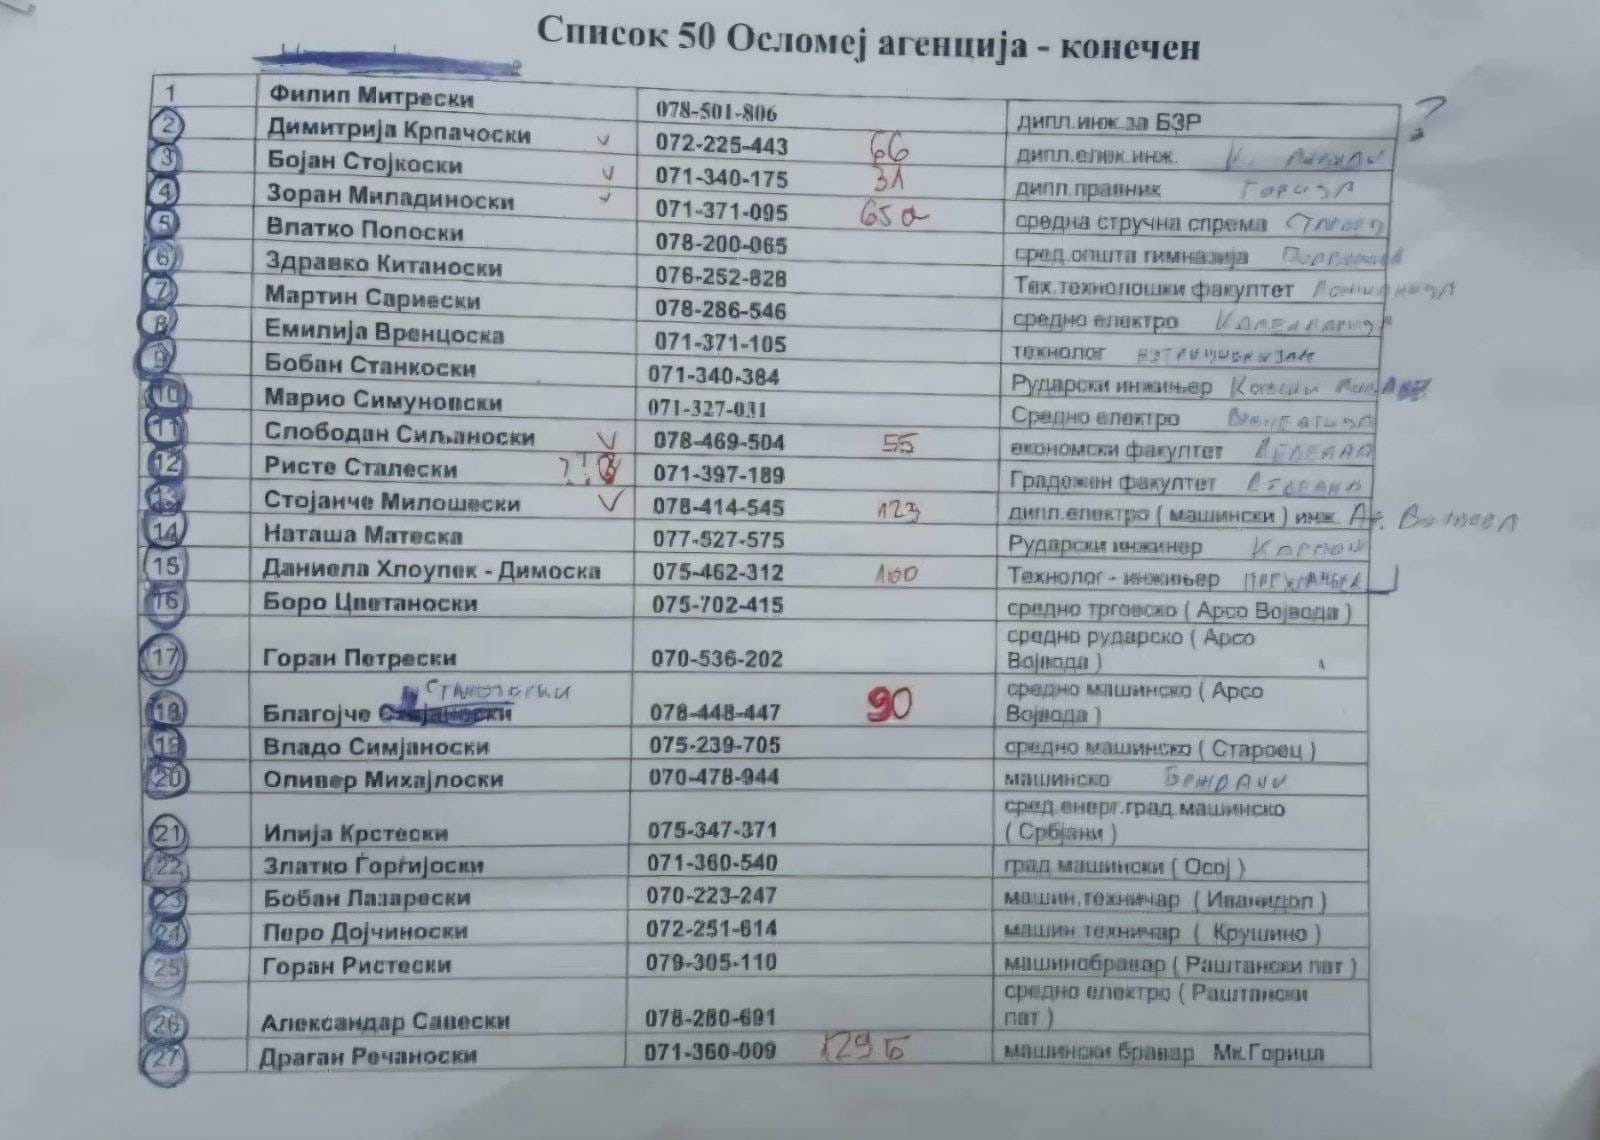 Список 50 Осломеј агенција - конечен
1 Филип Митрески 078-501-806 дипл.инж.за БЗР ?
2 Димитрија Крпачоски 072-225-443 66 дипл.елек.инж.
3 Бојан Стојкоски 071-340-175 31 дипл.правник
4 Зоран Миладиноски 071-371-095 65а средна стручна спрема
5 Влатко Попоски 078-200-065 сред.општа гимназија
6 Здравко Китаноски 076-252-828 Тех.технолошки факултет
7 Мартин Сариески 078-286-546 средно електро
8 Емилија Вренцоска 071-371-105 технолог
9 Бобан Станкоски 071-340-384 Рударски инжињер
10 Марио Симуновски 071-327-031 Средно електро
11 Слободан Сиљаноски 078-469-504 55 економски факултет
12 Ристе Сталески 071-397-189 Градежен факултет
13 Стојанче Милошески 078-414-545 123 дипл.електро ( машински ) инж.
14 Наташа Матеска 077-527-575 Рударски инжинер
15 Даниела Хлоупек - Димоска 075-462-312 100 Технолог - инжињер
16 Боро Цветаноски 075-702-415 средно трговско ( Арсо Војвода )
17 Горан Петрески 070-536-202 средно рударско ( Арсо
Војвода )
18 Благојче 078-448-447 90 средно машинско ( Арсо
Војвода )
19 Владо Симјаноски 075-239-705 средно машинско ( Староец )
20 Оливер Михајлоски 070-478-944 машинско
21 Илија Крстески 075-347-371 сред.енерг.град.машинско
( Србјани )
22 Златко Ѓорѓијоски 071-360-540 град.машински ( Осој )
23 Бобан Лазарески 070-223-247 машин.техничар ( Иванидол )
24 Перо Дојчиноски 072-251-614 машин.техничар ( Крушино )
25 Горан Ристески 079-305-110 машинобравар ( Раштански пат )
26 Александар Савески 078-280-691 средно електро ( Раштански
пат )
27 Драган Речаноски 071-360-009 129Б машински бравар Мк.Горица